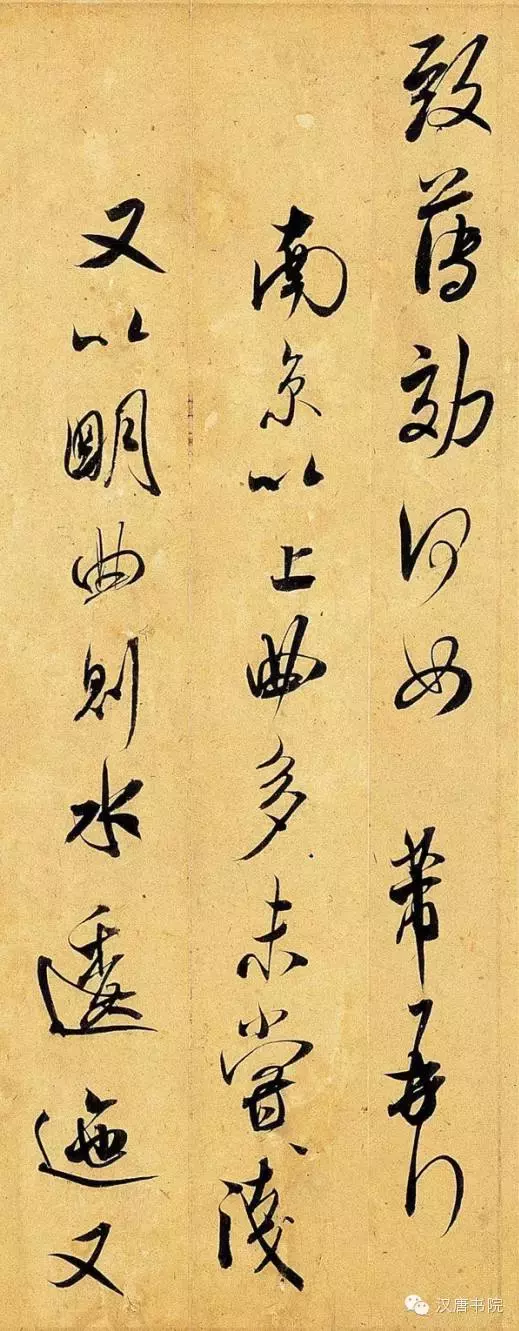 致薄効何如 芾再行
南京以上曲多未嘗淺
又以明曲則水逶迤又
汉唐书院